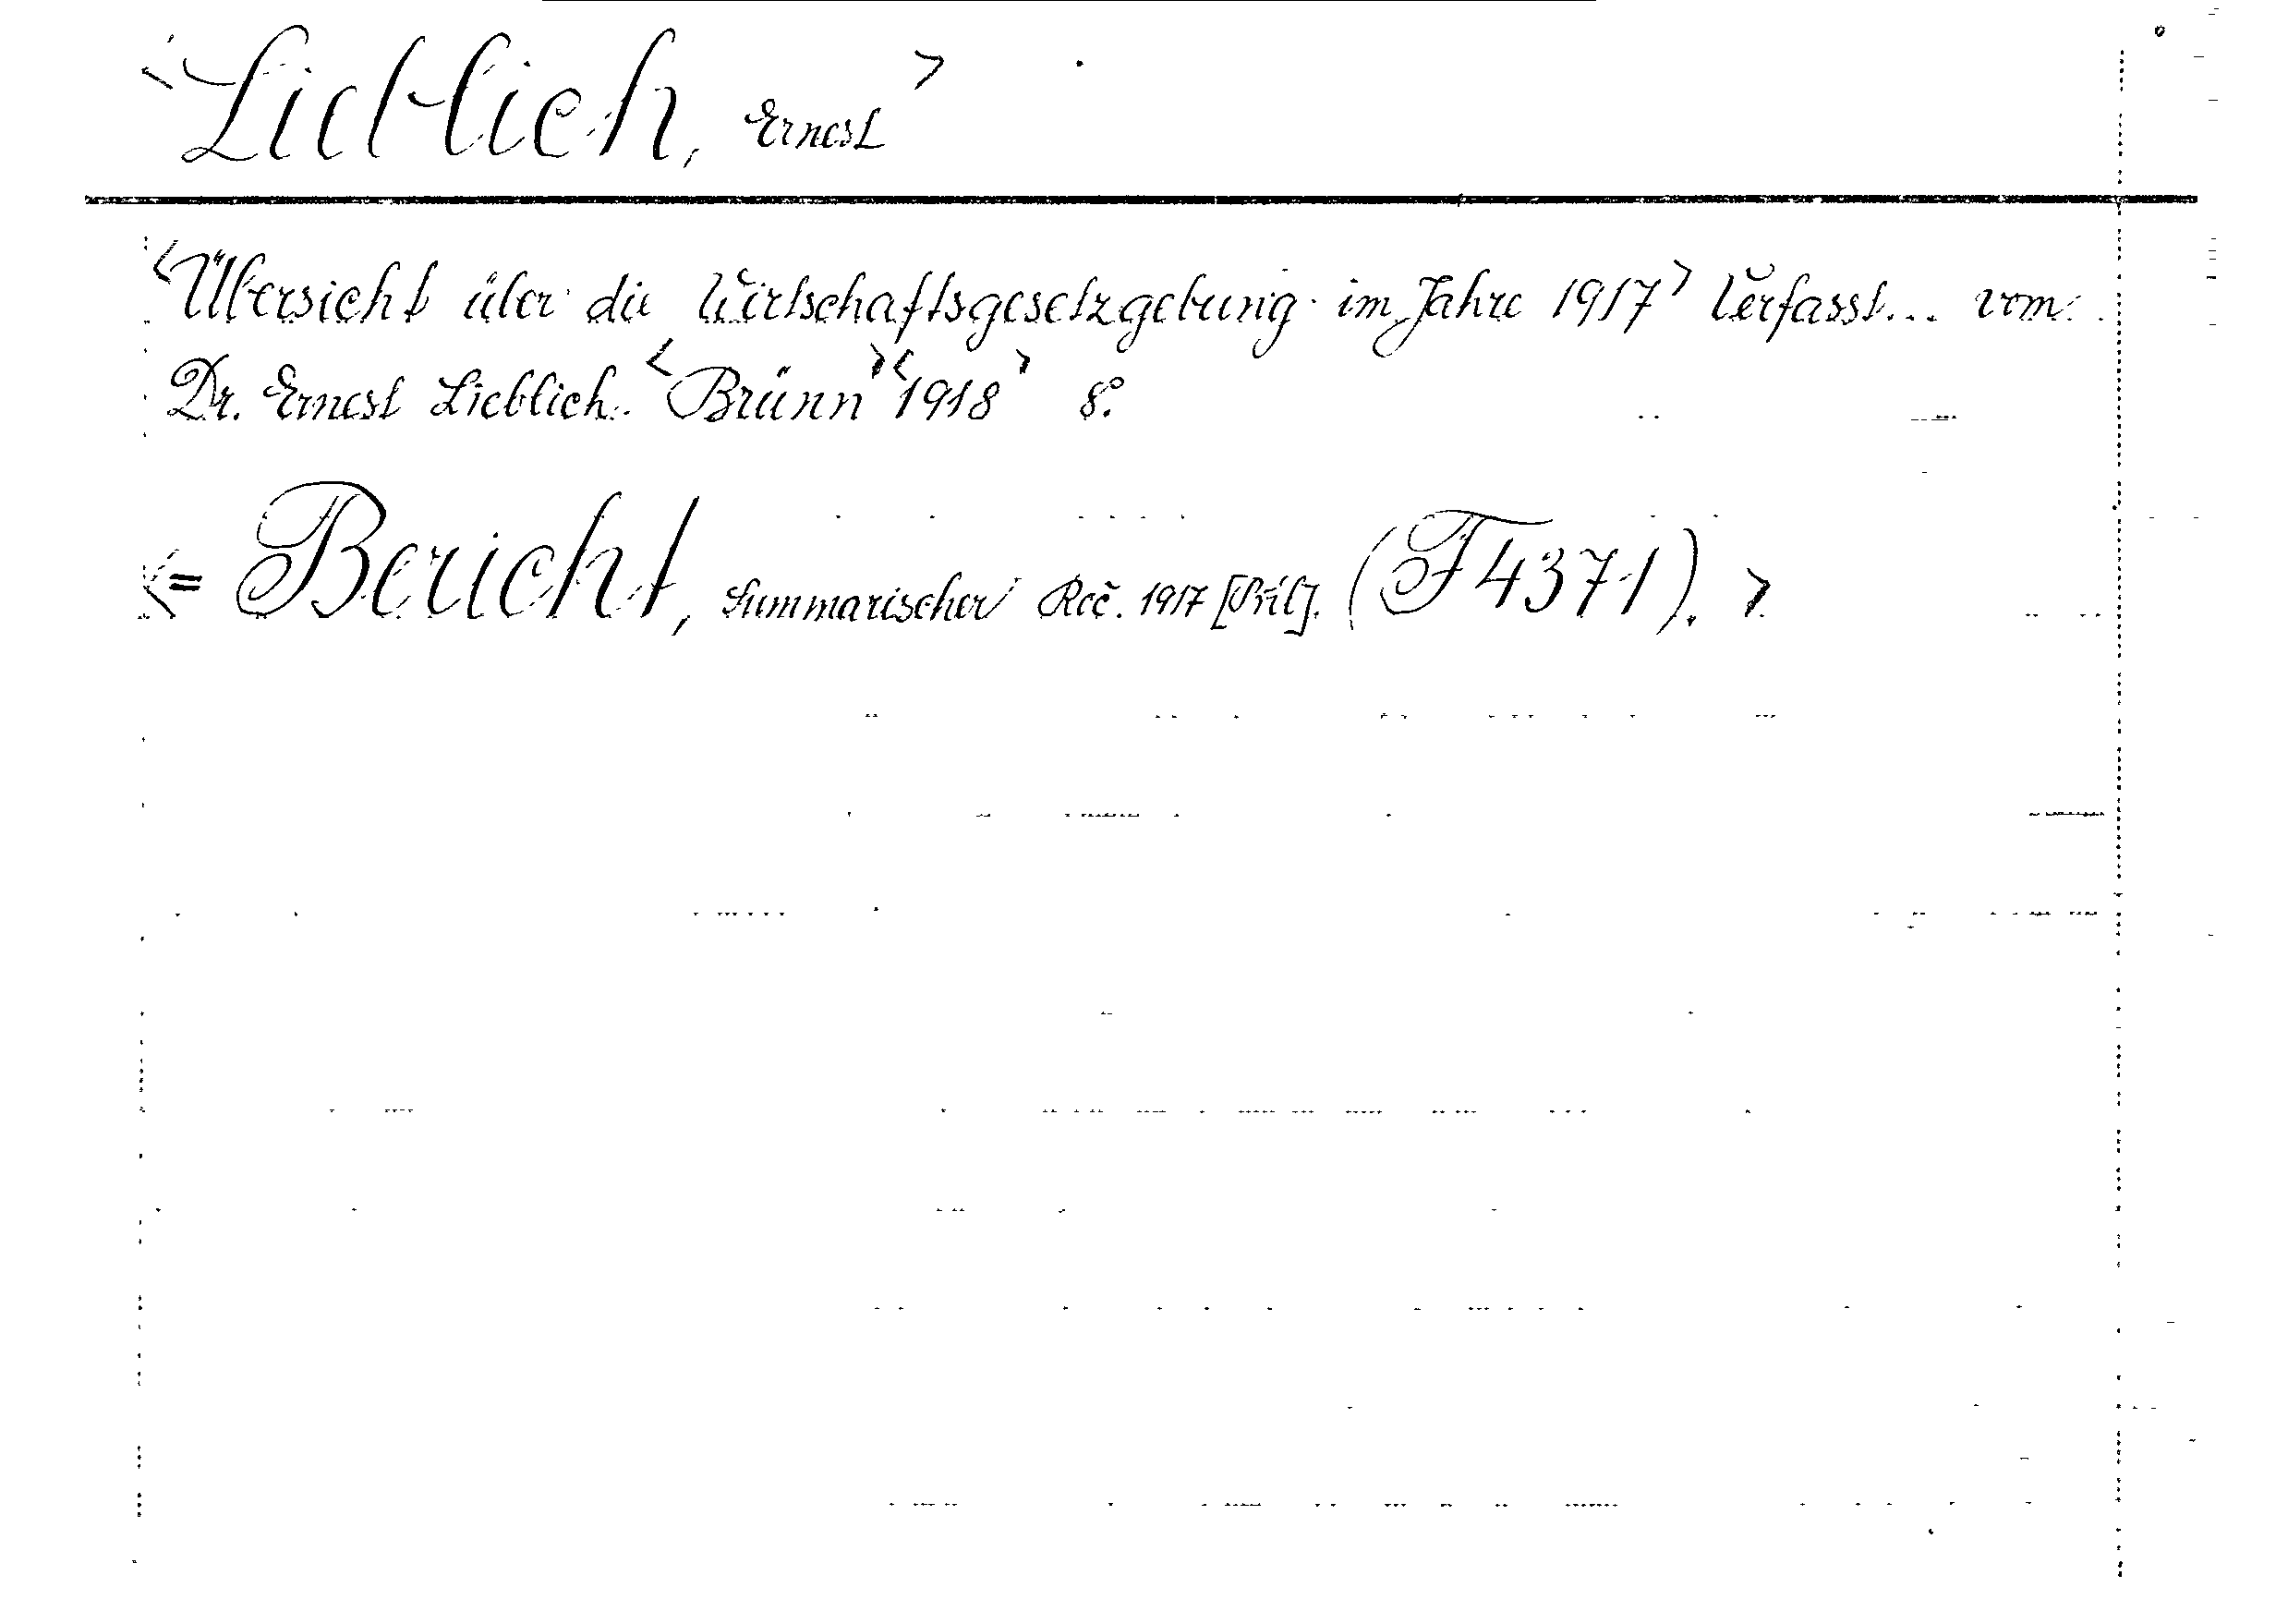 <Lieblich, Ernest>
<Übersicht über die Wirtschaftsgesetzgebung im Jahre 1917> Verfasst... vom
Dr. Ernest Lieblich. <Brünn><1918> 8°.
<= Bericht, Summarischer Roč. 1917 [Příl]. (F4371).>